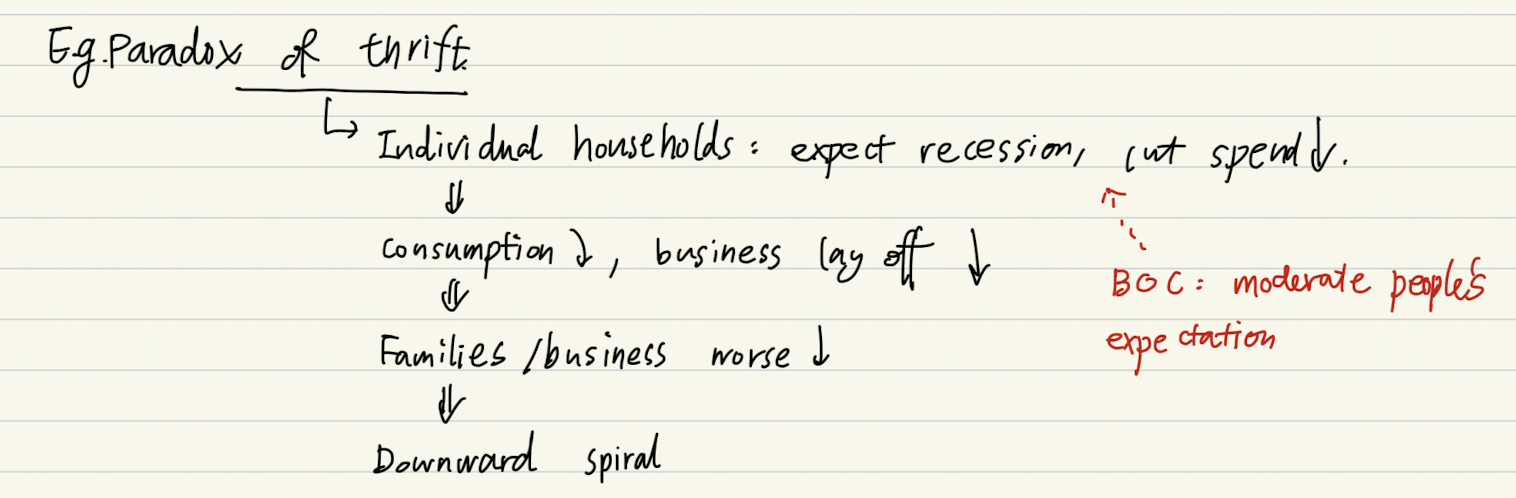 E.g. Paradox of thrift
↳ Individual households: expect recession, cut spend↓.
⇓
consumption ↓, business lay off ↓
⇓
Families/business worse ↓
⇓
Downward spiral
BOC: moderate people's
expectation